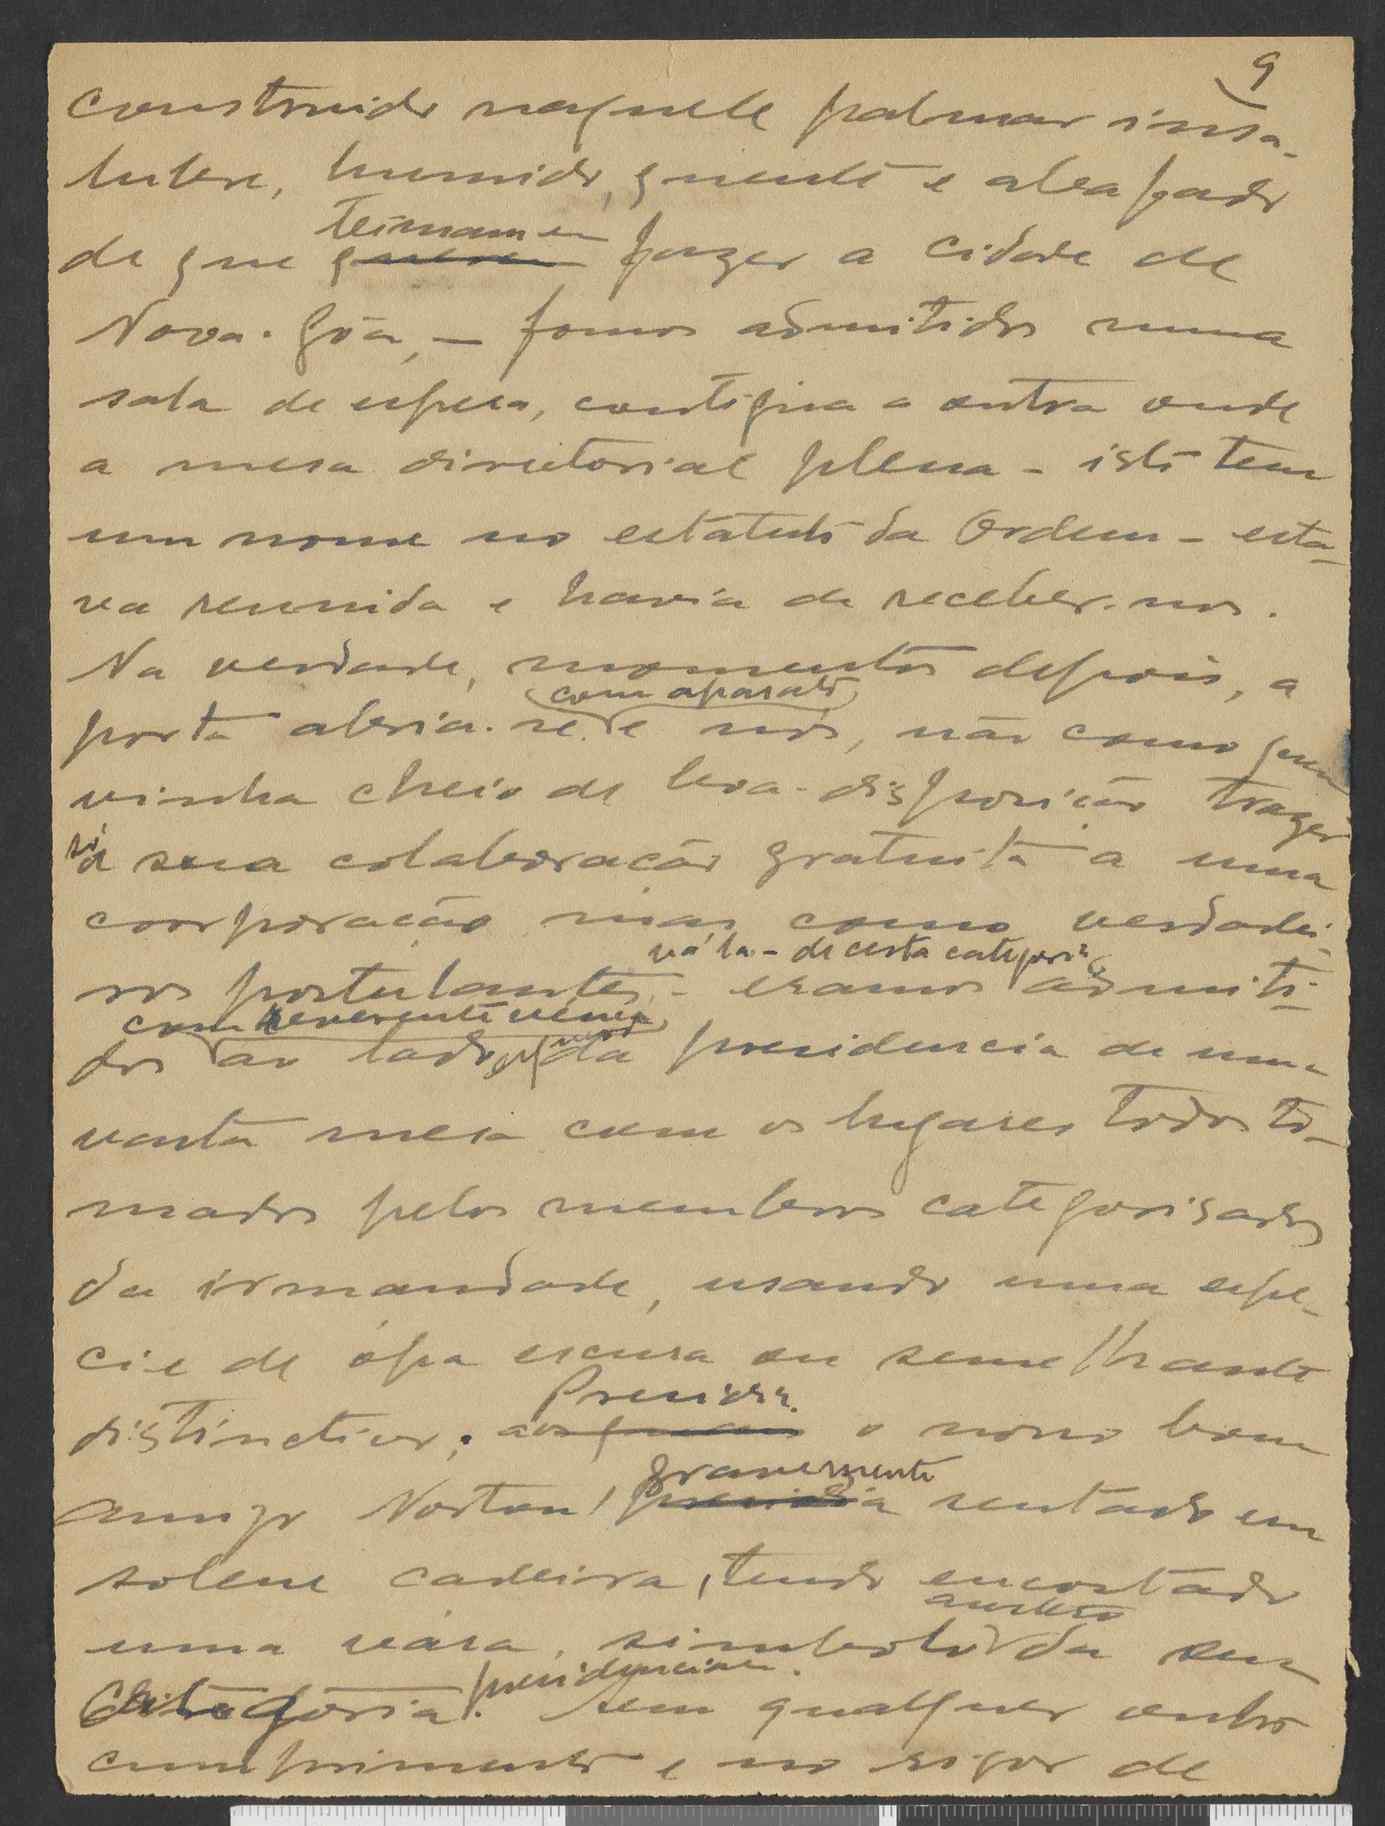 9
construido naquele palmar insa-
lubre, humido, quente e alagado
teimam em
de que querem fazer a cidade de
Nova-Gôa, — fomos admitidos numa
sala de espera, contigua a outra onde
a mesa directorial plena - isto tem
um nome no estatuto da Ordem - esta-
va reunida e havia de receber-nos.
Na verdade, momentos depois, a
com aparato
porta abria-se e nós, não como quem
vinha cheio de boa-disposição trazer
só
a sua colaboração gratuita a uma
corporação mas como verdadei-
vá lá - de certa categoria
ros postulantes - eramos admiti-
com reverente vénia
dos ao lado da presidencia de uma
vasta mesa com os lugares todos to-
mados pelos membros categorisados
da irmandade, usando uma espe-
cie de ópa escura ou semelhante
Presidia
distinctivo; aos quais o nosso bom
gravemente
amigo Norton, presidia sentado em
solene cadeira, tendo encostado
austero
uma vára, simbolo da sua
presidencial.
categoria. Sem qualquer outro
cumprimento e no rigor de